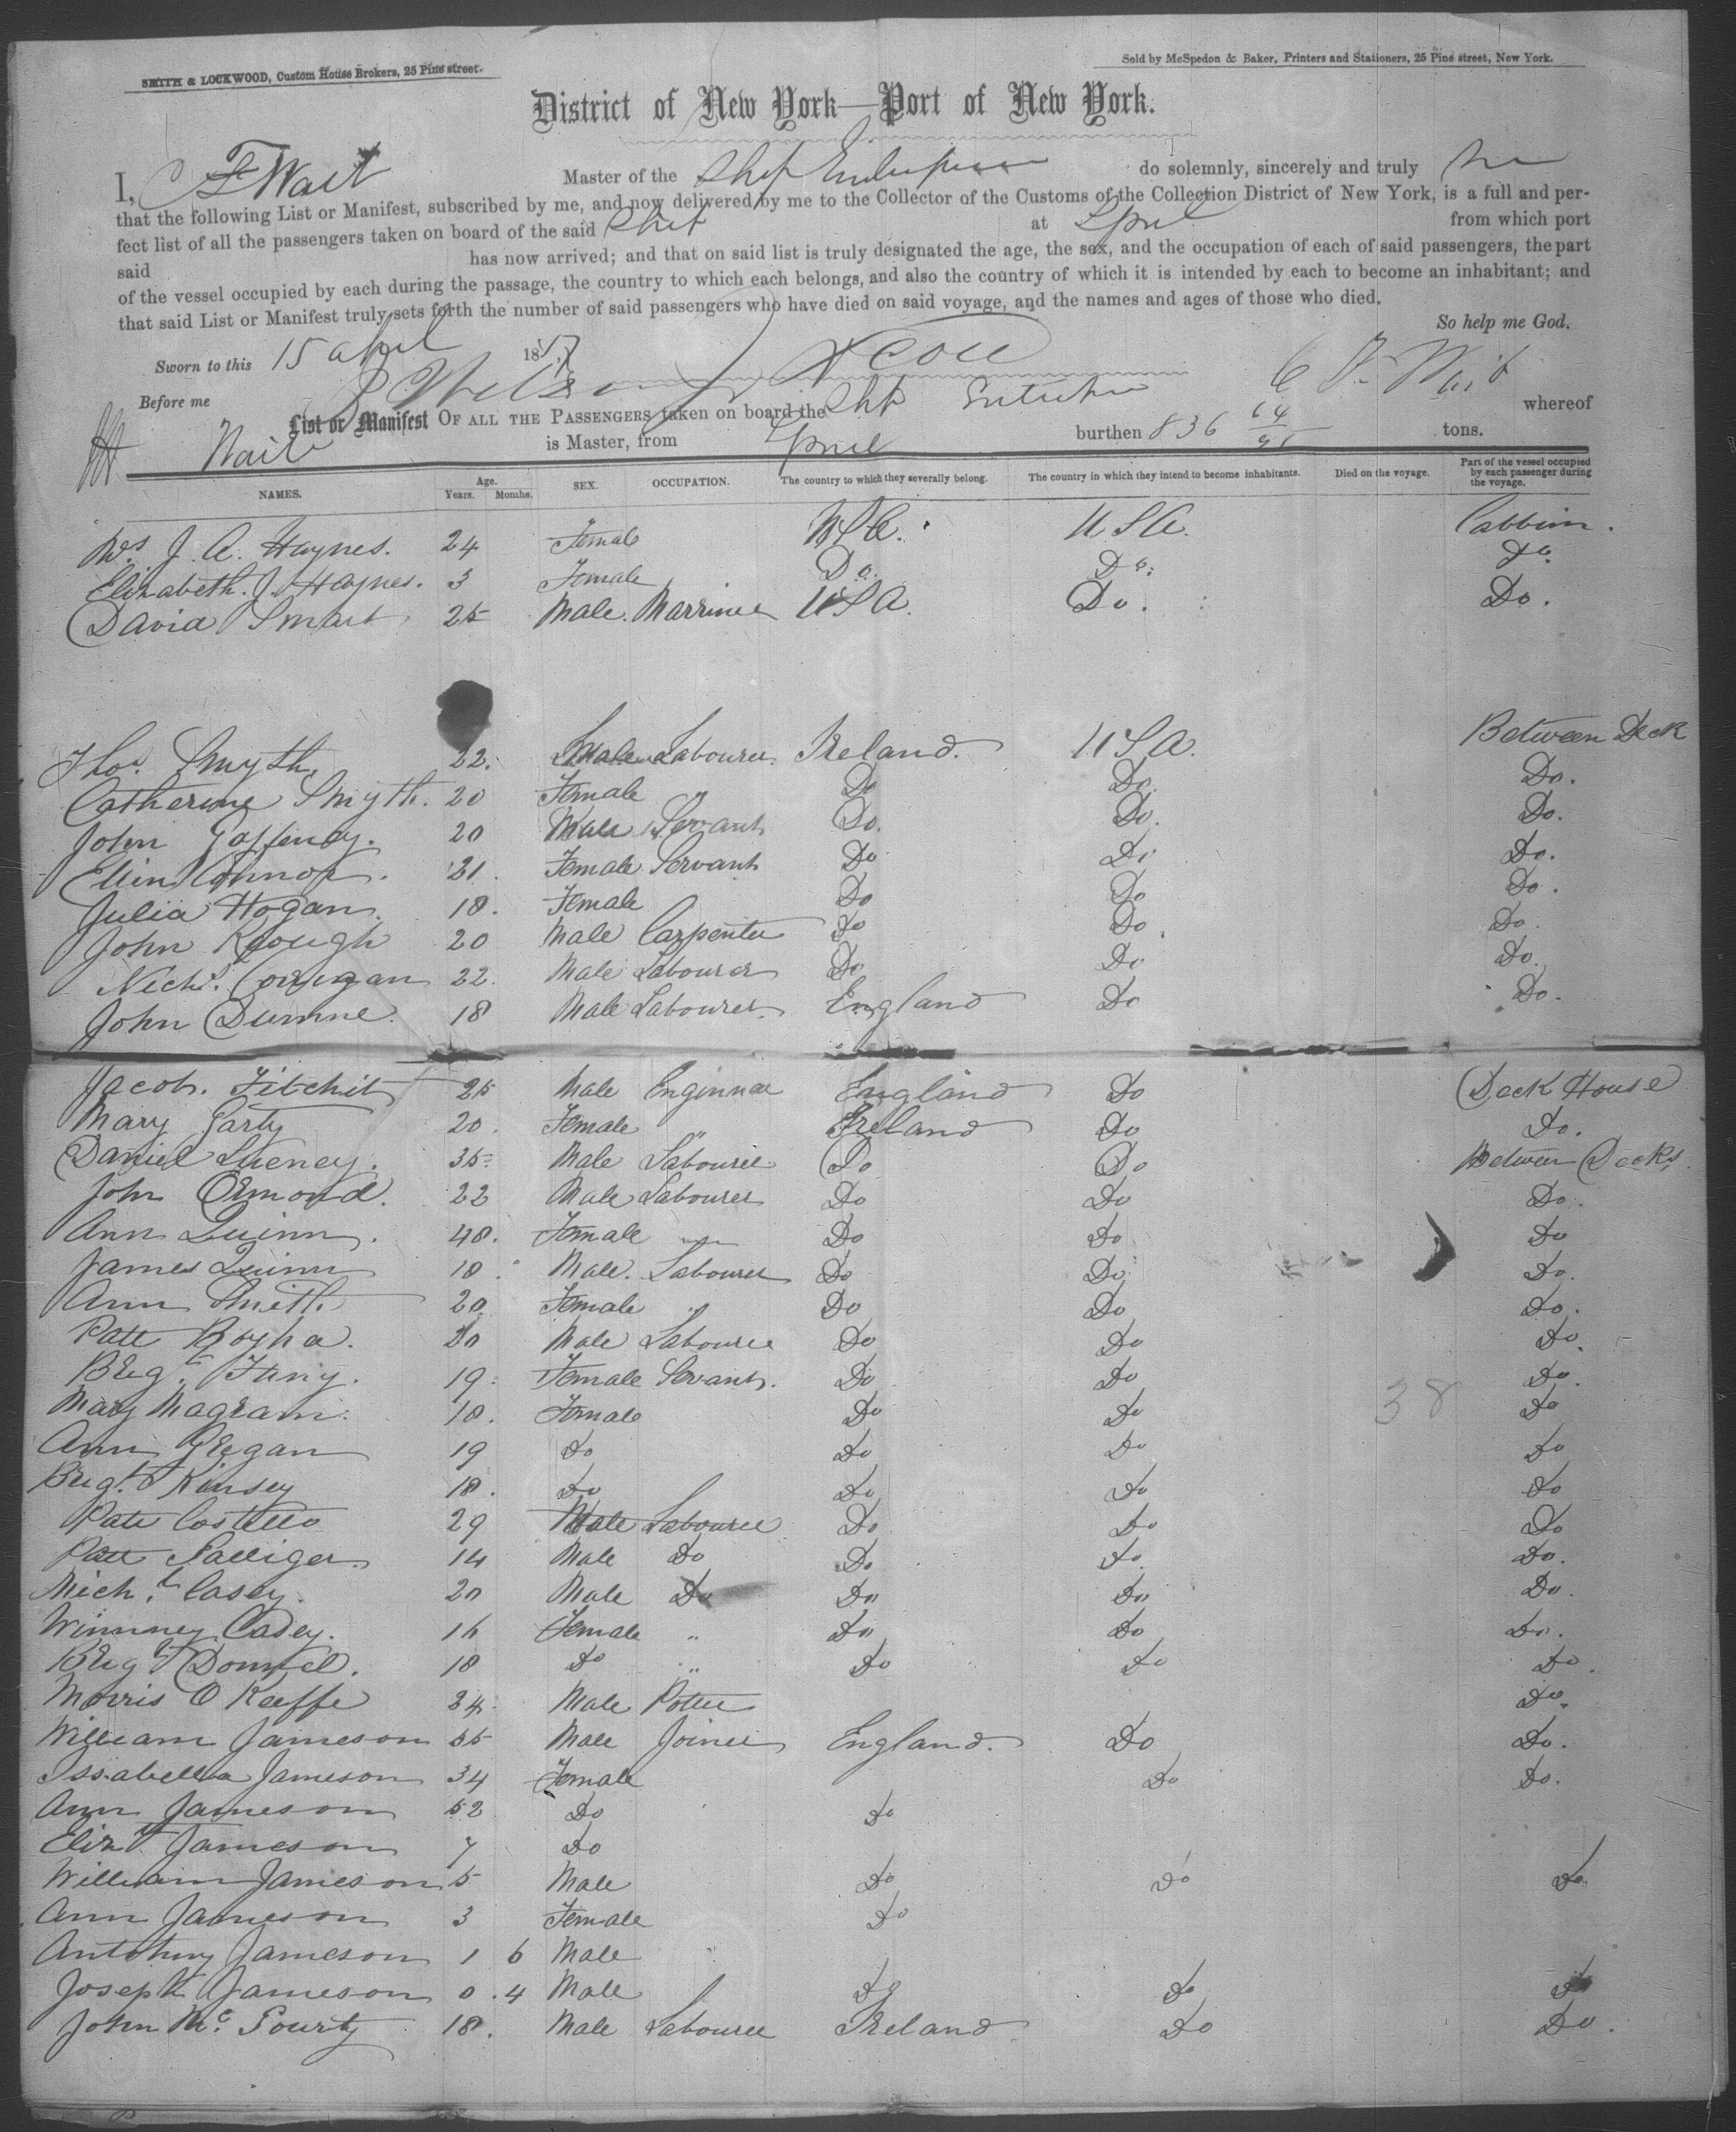 SMITH & LOCKWOOD, Custom House Brokers, 25 Pine street.
Sold by McSpedon & Baker, Printers and Stationers, 25 Pine street, New York.
District of New York—Port of New York.
I, C F Wait Master of the Ship do solemnly, sincerely and truly
that the following List or Manifest, subscribed by me, and now delivered by me to the Collector of the Customs of the Collection District of New York, is a full and per-
fect list of all the passengers taken on board of the said Ship at Lpool from which port
said has now arrived; and that on said list is truly designated the age, the sex, and the occupation of each of said passengers, the part
of the vessel occupied by each during the passage, the country to which each belongs, and also the country of which it is intended by each to become an inhabitant; and
that said List or Manifest truly sets forth the number of said passengers who have died on said voyage, and the names and ages of those who died.
So help me God.
Sworn to this 15 April 1857
C F Wait
Before me
List or Manifest OF ALL THE PASSENGERS taken on board the Ship whereof
Wait is Master, from Lpool burthen 836 64/95 tons.
NAMES. Age. Years. Months. SEX. OCCUPATION. The country to which they severally belong. The country in which they intend to become inhabitants. Died on the voyage. Part of the vessel occupied by each passenger during the voyage.
Mrs J. A. Haynes. 24 Female USA. USA. Cabbin.
Elizabeth. J. Haynes. 3 Female Do. Do. Do.
David Smart 25 Male. Marrinee USA. Do. Do.
Thos. Smyth 22. Male Labourer. Ireland. USA. Between Deck
Catherine Smyth. 20 Female " Do Do. Do.
John Gaffeney. 20 Male Servant Do. Do. Do.
Ellin Connor. 21. Female Servant Do Do. Do.
Julia Hogan. 18. Female Do Do Do.
John Keough 20 Male Carpenter Do Do. Do.
Nichs. Corrigan 22. Male Labourer Do. Do Do.
John Dumne. 18 Male Labourer. England Do Do.
Jacob. Fitchit 25 Male Enginnee England Do Deck House
Mary Garty 20. Female " Ireland Do Do.
Daniel Sueney. 35 Male Labouree Do Do Between Decks.
John Ormond. 22 Male Labourer Do Do Do.
Ann Quinn. 48. Female " Do Do Do
James Quinn 18. Male. Labourer Do Do Do.
Ann Smith 20. Female " Do Do Do.
Patt 20 Male Labouree Do Do Do.
Brigt. 19. Female Servant. Do Do Do.
Mary Magram. 18. Female Do Do 38 Do
Ann Gregan 19 Do Do Do Do
Brigt. Kinsey 18. Do Do Do Do
Patt Costello 29 Male Labouree Do Do Do
Patt 14 Male Do Do Do Do.
Michl. Casey. 20 Male Do Do Do Do.
Winnney Casey. 16 Female " Do Do Do.
Brigt Donnel. 18 Do " Do Do Do.
Morris O Keeffe 34. Male Potter Do.
William Jameson 35 Male Joiner England. Do Do.
Issabella Jameson 34 Female Do Do.
Ann Jameson 52 Do Do
Elizth Jameson 7 Do
William Jameson 5 Male Do Do Do.
Ann Jameson 3 Female Do
Antohny Jameson 1 6 Male
Joseph Jameson 0. 4 Male Do Do Do
John Mc. Gourty 18. Male Labouree Ireland Do Do.